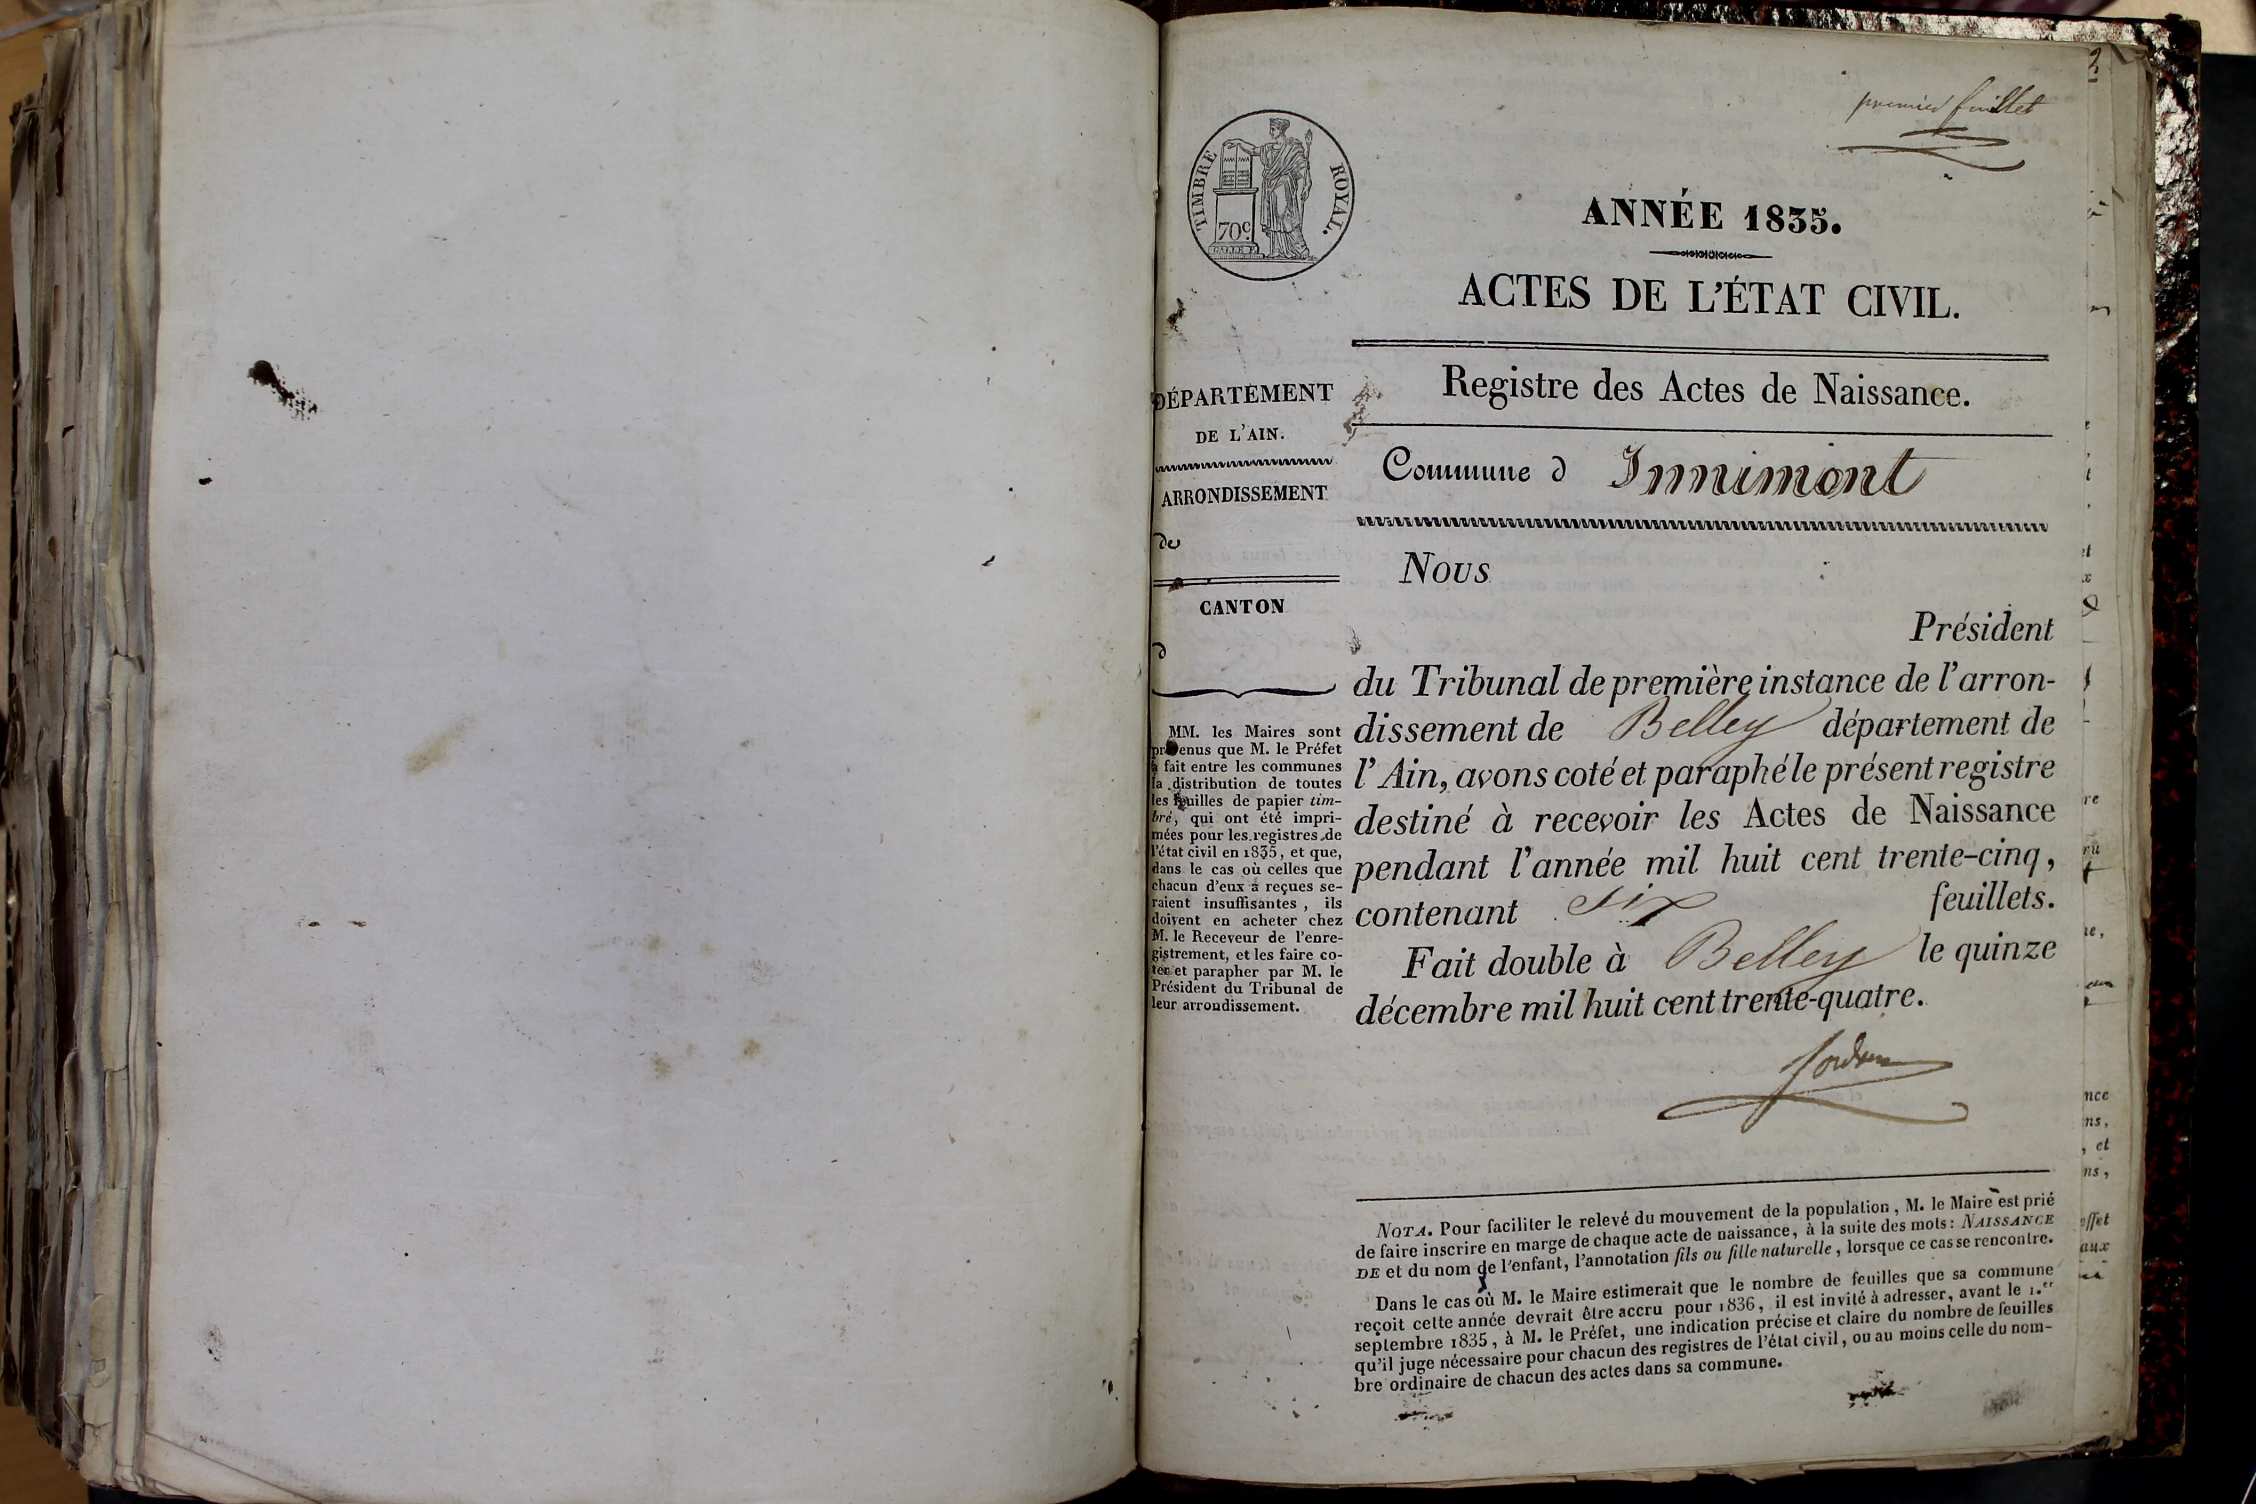 premier feuillet
TIMBRE ROYAL.
70c.
ANNÉE 1835.
ACTES DE L'ÉTAT CIVIL.
Registre des Actes de Naissance.
Commune d Innimont
DÉPARTEMENT
DE L'AIN.
ARRONDISSEMENT
de
CANTON
d
MM. les Maires sont
prévenus que M. le Préfet
a fait entre les communes
la distribution de toutes
les feuilles de papier tim-
bré, qui ont été impri-
mées pour les registres de
l'état civil en 1835, et que,
dans le cas où celles que
chacun d'eux a reçues se-
raient insuffisantes, ils
doivent en acheter chez
M. le Receveur de l'enre-
gistrement, et les faire co-
ter et parapher par M. le
Président du Tribunal de
leur arrondissement.
Nous
Président
du Tribunal de première instance de l'arron-
dissement de Belley département de
l'Ain, avons coté et paraphé le présent registre
destiné à recevoir les Actes de Naissance
pendant l'année mil huit cent trente-cinq,
contenant six feuillets.
Fait double à Belley le quinze
décembre mil huit cent trente-quatre.
NOTA. Pour faciliter le relevé du mouvement de la population, M. le Maire est prié
de faire inscrire en marge de chaque acte de naissance, à la suite des mots: NAISSANCE
DE et du nom de l'enfant, l'annotation fils ou fille naturelle, lorsque ce cas se rencontre.
Dans le cas où M. le Maire estimerait que le nombre de feuilles que sa commune
reçoit cette année devrait être accru pour 1836, il est invité à adresser, avant le 1.er
septembre 1835, à M. le Préfet, une indication précise et claire du nombre de feuilles
qu'il juge nécessaire pour chacun des registres de l'état civil, ou au moins celle du nom-
bre ordinaire de chacun des actes dans sa commune.